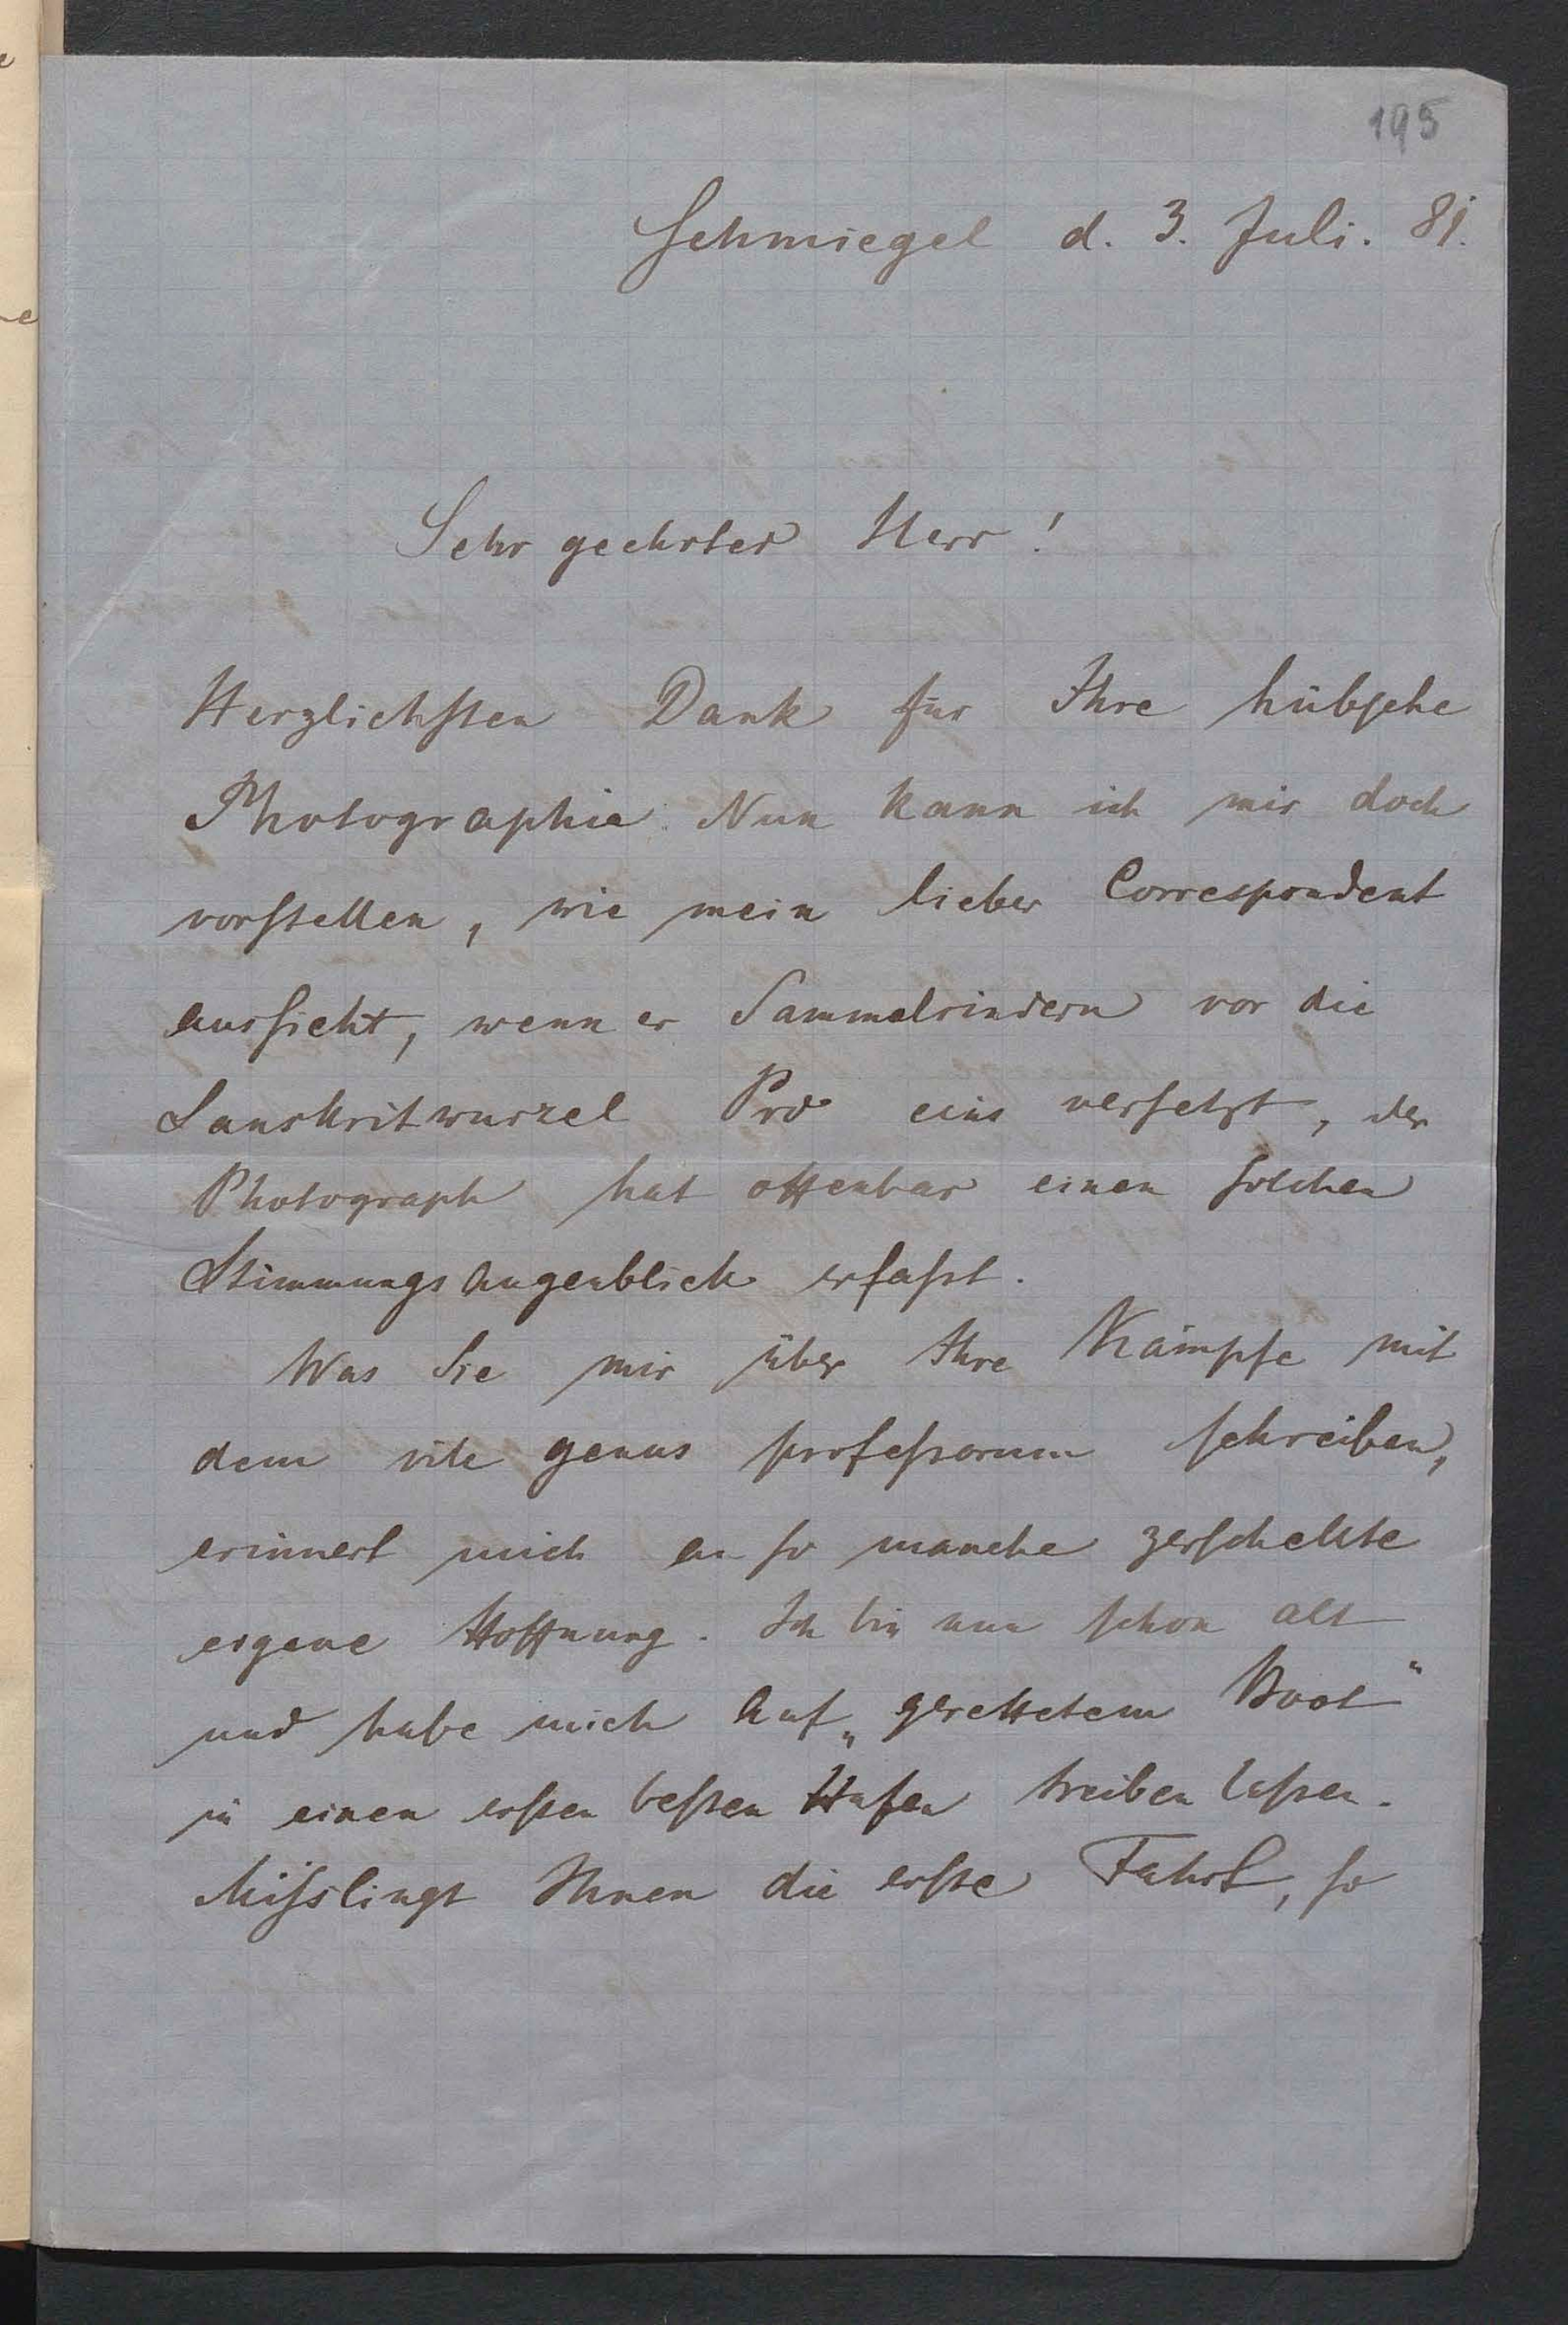 195
Schmiegel d. 3. Juli. 81.
Sehr geehrter Herr!
Herzlichsten Dank für Ihre hübsche
Photographie. Nun kann ich mir doch
vorstellen, wie mein lieber Correspondent
aussieht, wenn er Sammelrindern vor die
Sanskritwurzel Prd eins versetzt, der
Photograph hat offenbar einen solchen
Stimmungsaugenblick erfaßt.
Was Sie mir über Ihre Kämpfe mit
dem vile genus professorum schreiben,
erinnert mich an so manche zerschellte
eigene Hoffnung. Ich bin nun schon alt
und habe mich auf „gerettetem Boot“
in einen ersten besten Hafen treiben lassen.
Misslingt Ihnen die erste Fahrt, so